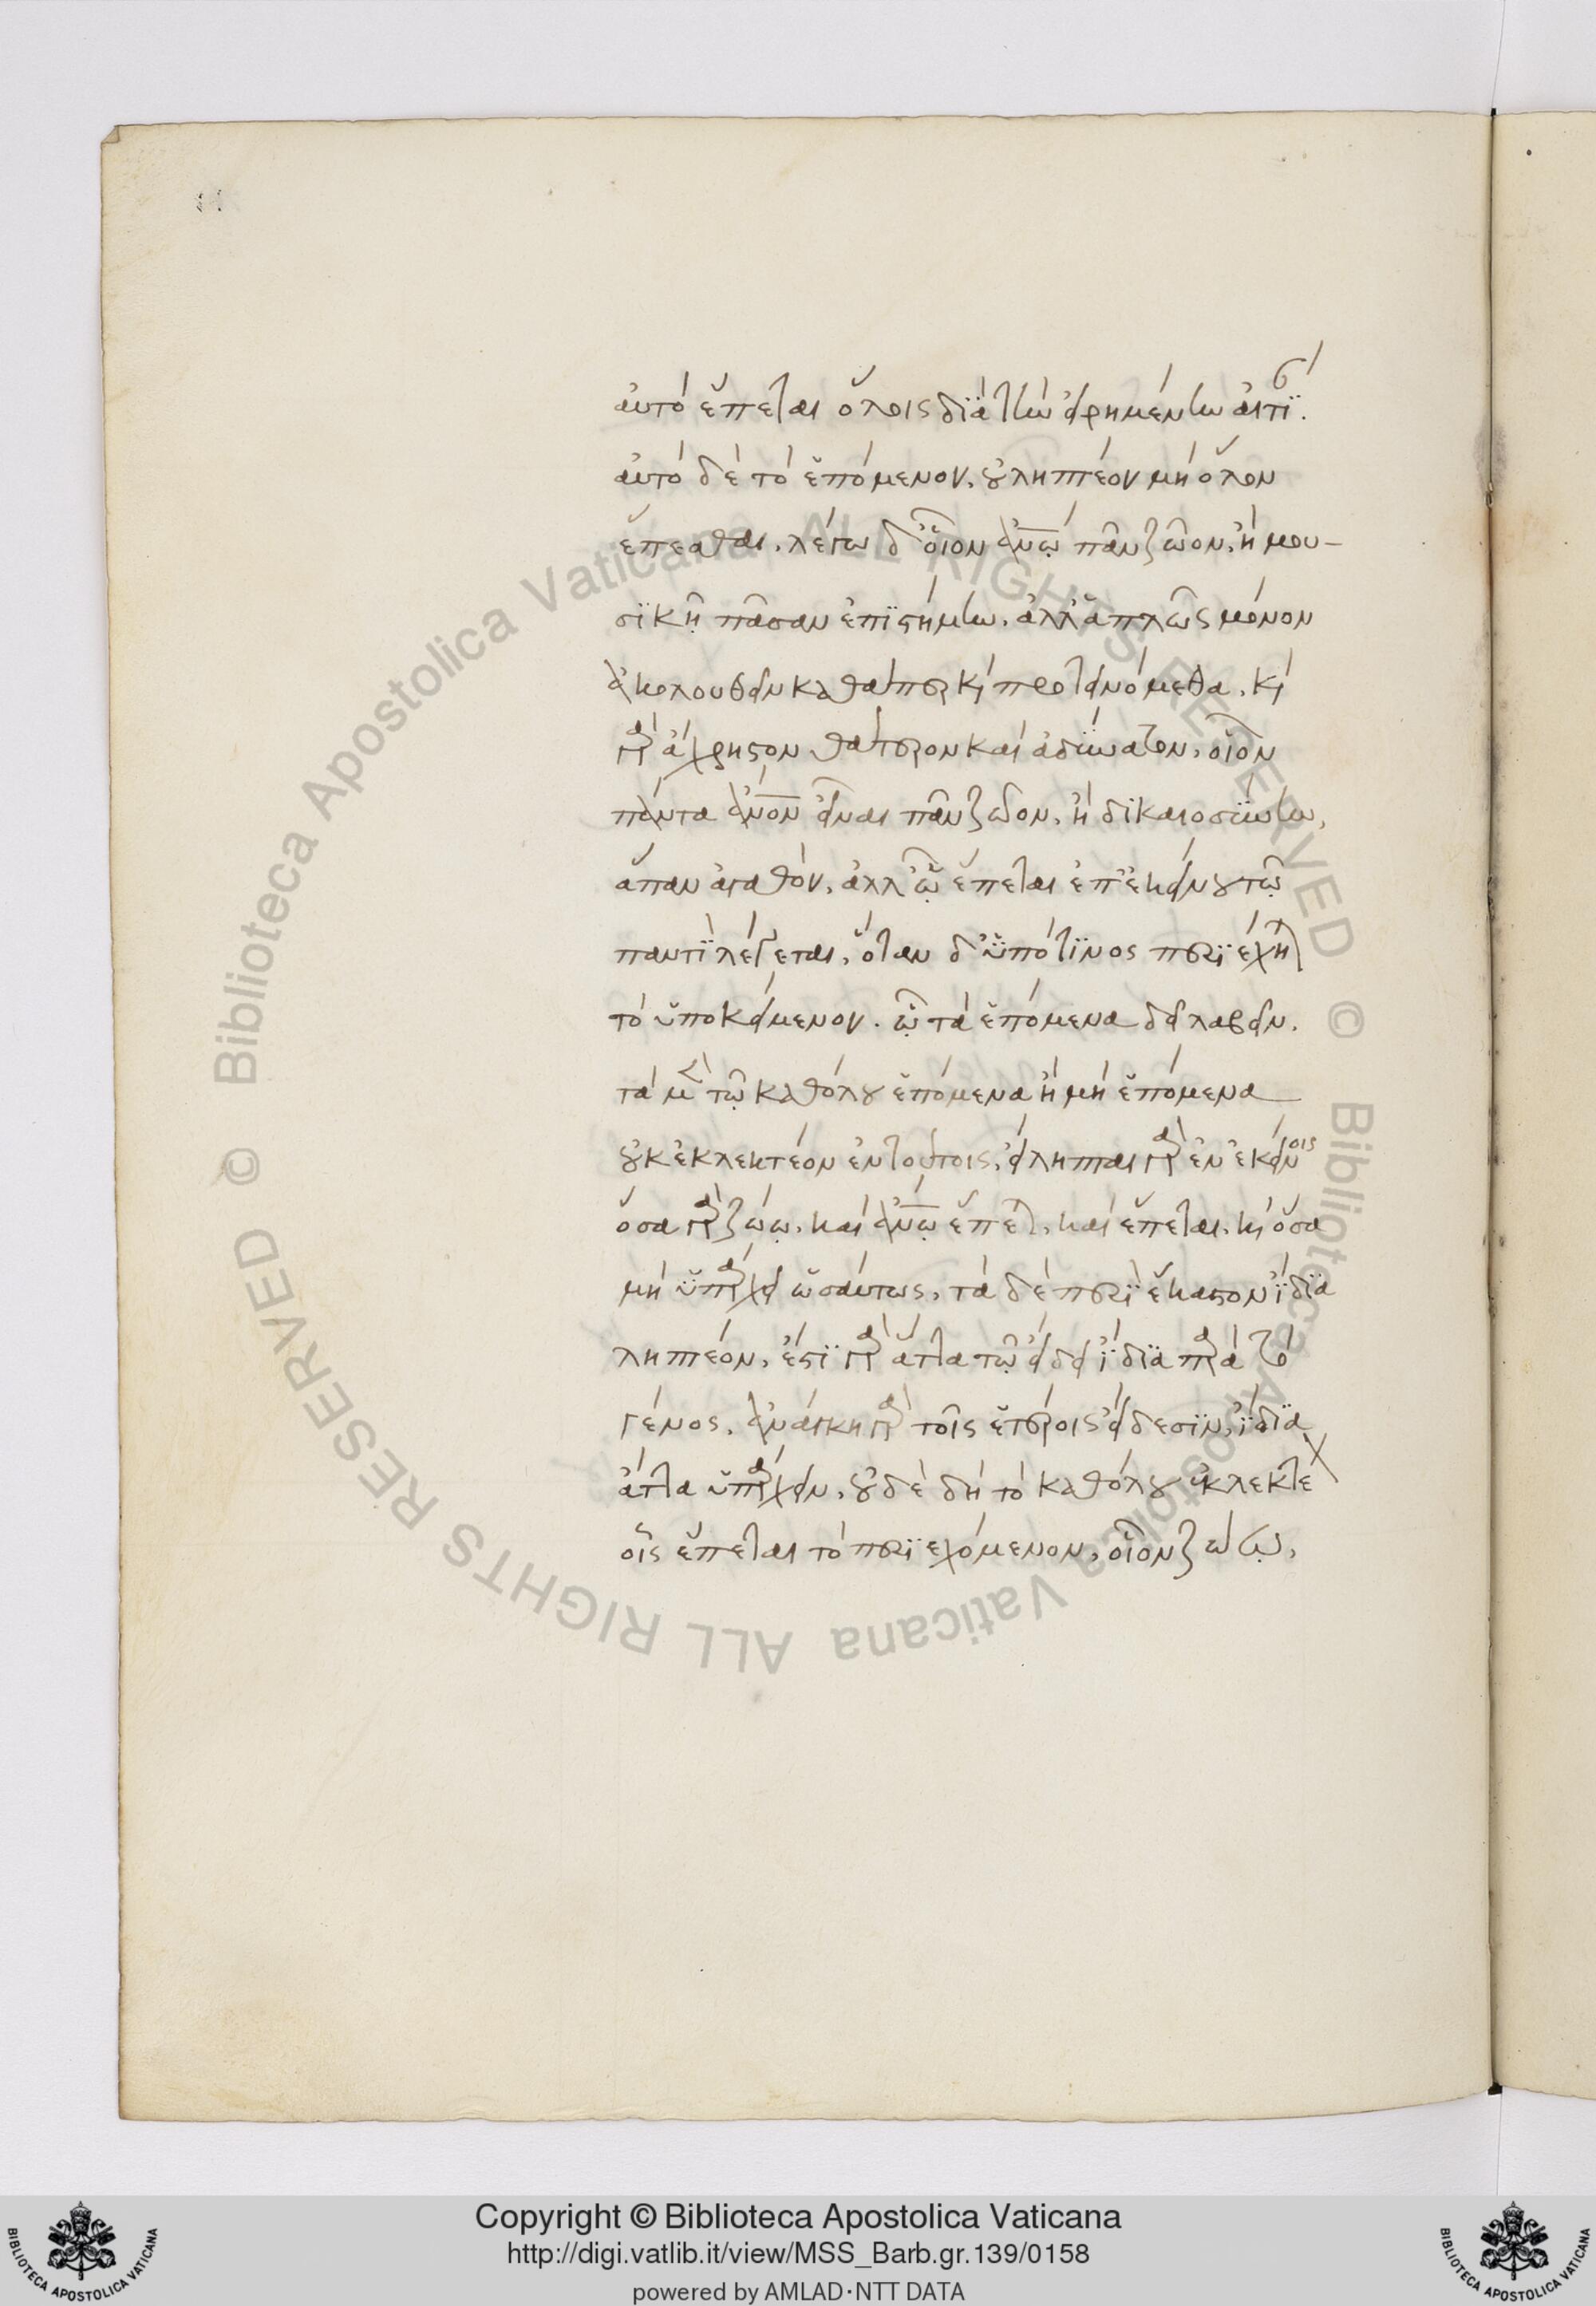 αὐτὸ ἕπεται ὅλοις διὰ τὴν εἰρημένην αἰτί
αὐτὸ δὲ τὸ ἑπόμενον. οὐ ληπτέον μὴ ὅλον
ἕπεσθαι. λέγω δ' οἷον ἀνω πᾶν ζῶον. ἢ μου-
σικῆ πᾶσαν ἐπιστήμην. ἀλλ' ἁπλῶς μόνον
ἀκολουθεῖν καθάπερ κὶ προτεινόμεθα. κὶ
γὰρ ἄχρηστον θάτερον καὶ ἀδύνατον, οἷον
πάντα ἀνον εἶναι πᾶν ζῶον. ἢ δικαιοσύνην,
ἅπαν ἀγαθόν. ἀλλ' ᾧ ἕπεται ἐπ' ἐκείνου τῷ
παντὶ λέγεται. ὅταν δ' ὑπό τινος περιέχη
τὸ ὑποκείμενον. ᾧ τὰ ἑπόμενα δεῖ λαβεῖν.
τὰ μὲν τῷ καθόλου ἑπόμενα ἢ μὴ ἑπόμενα
οὐκ ἐκλεκτέον ἐν τούτοις. εἴληπται γὰρ ἐν ἐκείνοις
ὅσα γὰρ ζώῳ. καὶ ἀνῳ ἕπετ. καὶ ἕπεται. κὶ ὅσα
μὴ ὑπάρχει ὡσαύτως. τὰ δὲ περὶ ἕκαστον ἴδια
ληπτέον. ἔστι γὰρ ἄττα τῷ εἴδει ἴδια παρὰ τὸ
γένος. ἀνάγκη γὰρ τοῖς ἑτέροις εἴδεσιν, ἴδια
ἄττα ὑπάρχειν. οὐδὲ δὴ τὸ καθόλου ἐκλεκτέ
οἷς ἕπεται τὸ περιεχόμενον. οἷον ζώῳ,
Copyright © Biblioteca Apostolica Vaticana
http://digi.vatlib.it/view/MSS_Barb.gr.139/0158
powered by AMLAD·NTT DATA